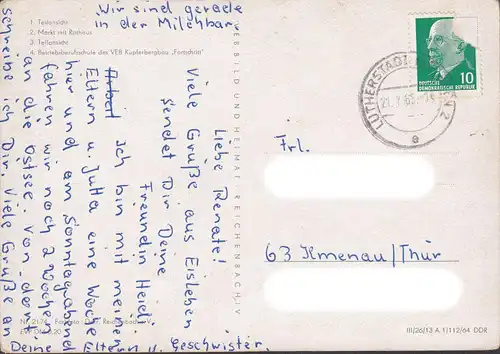 1. Teilansicht
2. Markt mit Rathaus
3. Teilansicht
4. Betriebsberufsschule des VEB Kupferbergbau „Fortschritt"
Wir sind gerade
in der Milchbar.
Liebe Renate!
Viele Grüße aus Eisleben
sendet Dir Deine
Freundin Heidi.
Ich bin mit meinen
Eltern u. Jutta eine Woche
hier und am Sonntagabend
fahren wir noch 2 Wochen
an die Ostsee. Von dort
schreibe ich Dir. Viele Grüße an
Deine Eltern u. Geschwister.
VEB BILD UND HEIMAT REICHENBACH i. V.
LUTHERSTADT
2
e
DEUTSCHE
DEMOKRATISCHE REPUBLIK
10
Frl.
63 Ilmenau/Thür
III/26/13 A 1/112/64 DDR